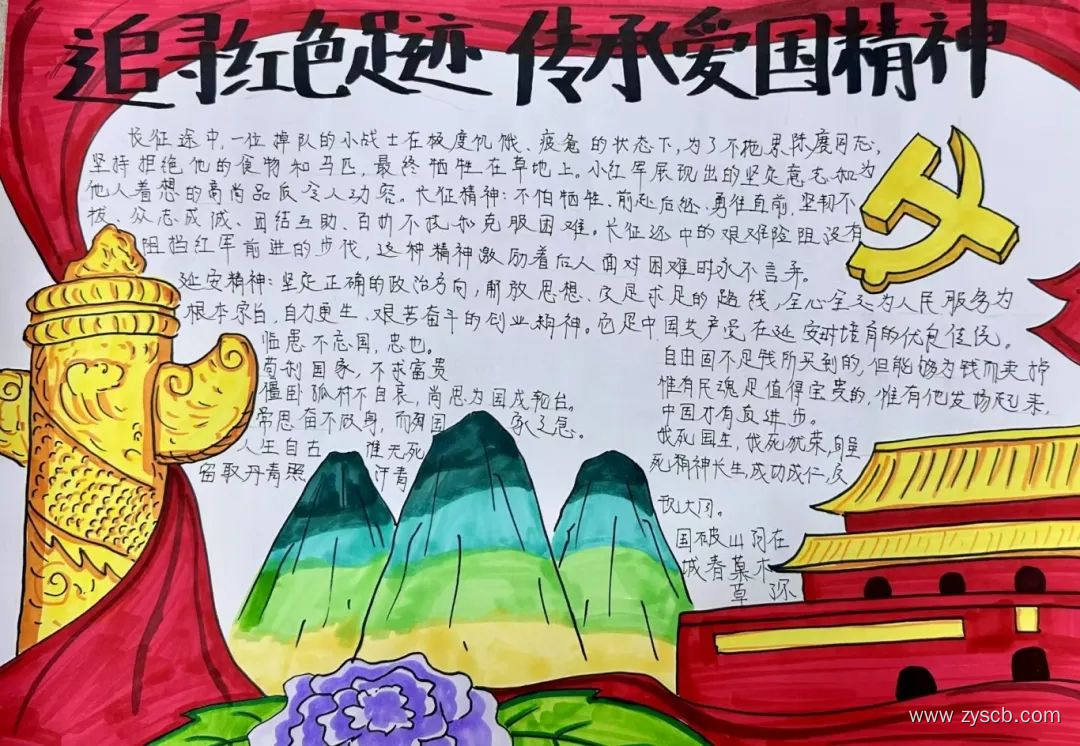 追寻红色足迹 传承爱国精神
长征途中,一位掉队的小战士在极度饥饿、疲惫的状态下,为了不拖累陈赓同志,
坚持拒绝他的食物和马匹,最终牺牲在草地上。小红军展现出的坚定意志和为
他人着想的高尚品质令人动容。长征精神:不怕牺牲、前赴后继、勇往直前,坚韧不
拔、众志成诚、团结互助、百折不挠和克服困难。长征途中的艰难险阻没有
阻挡红军前进的步伐,这种精神激励着后人面对困难时永不言弃。
延安精神:坚定正确的政治方向,解放思想、实是求是的路线,全心全意为人民服务为
根本宗旨,自力更生、艰苦奋斗的创业精神。它是中国共产党在延安时培育的优良传统。
临患不忘国,忠也。
苟利国家,不求富贵
僵卧孤村不自哀,尚思为国戍轮台。
常思奋不顾身,而殉国家之急。
人生自古谁无死
留取丹青照汗青
自由固不是钱所买到的,但能够为钱而卖掉
惟有民魂是值得宝贵的,惟有他发扬起来,
中国才有真进步。
我死国生,我死犹荣,身虽
死精神长生,成功成仁,实
现大同。
国破山河在
城春草木
草 深
www.zyscb.com